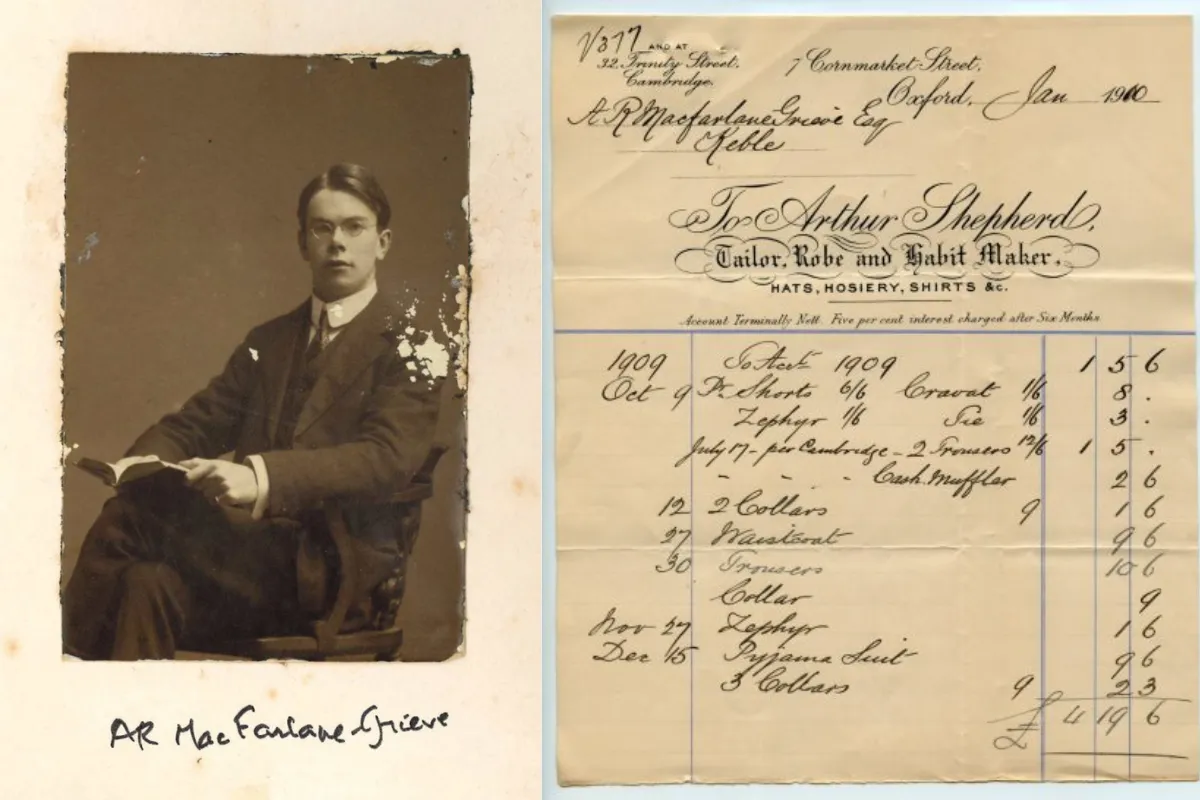 AR MacFarlane-Grieve
V377
AND AT
32, Trinity Street,
Cambridge.
7 Cornmarket Street,
Oxford, Jan 1910
A R Macfarlane Grieve Esq
Keble
To Arthur Shepherd,
Tailor, Robe and Habit Maker,
HATS, HOSIERY, SHIRTS &c.
Account Terminally Nett. Five per cent interest charged after Six Months
1909 To Acct 1909 1 5 6
Oct 9 Pr Shorts 6/6 Cravat 1/6 8 .
Zephyr 1/6 Tie 1/6 3 .
July 17 - per Cambridge - 2 Trousers 12/6 1 5 .
- - - - Cash. Muffler 2 6
12 2 Collars 9 1 6
27 Waistcoat 9 6
30 Trousers 10 6
Collar 9
Nov 27 Zephyr 1 6
Dec 15 Pyjama Suit 9 6
3 Collars 9 2 3
£ 4 19 6